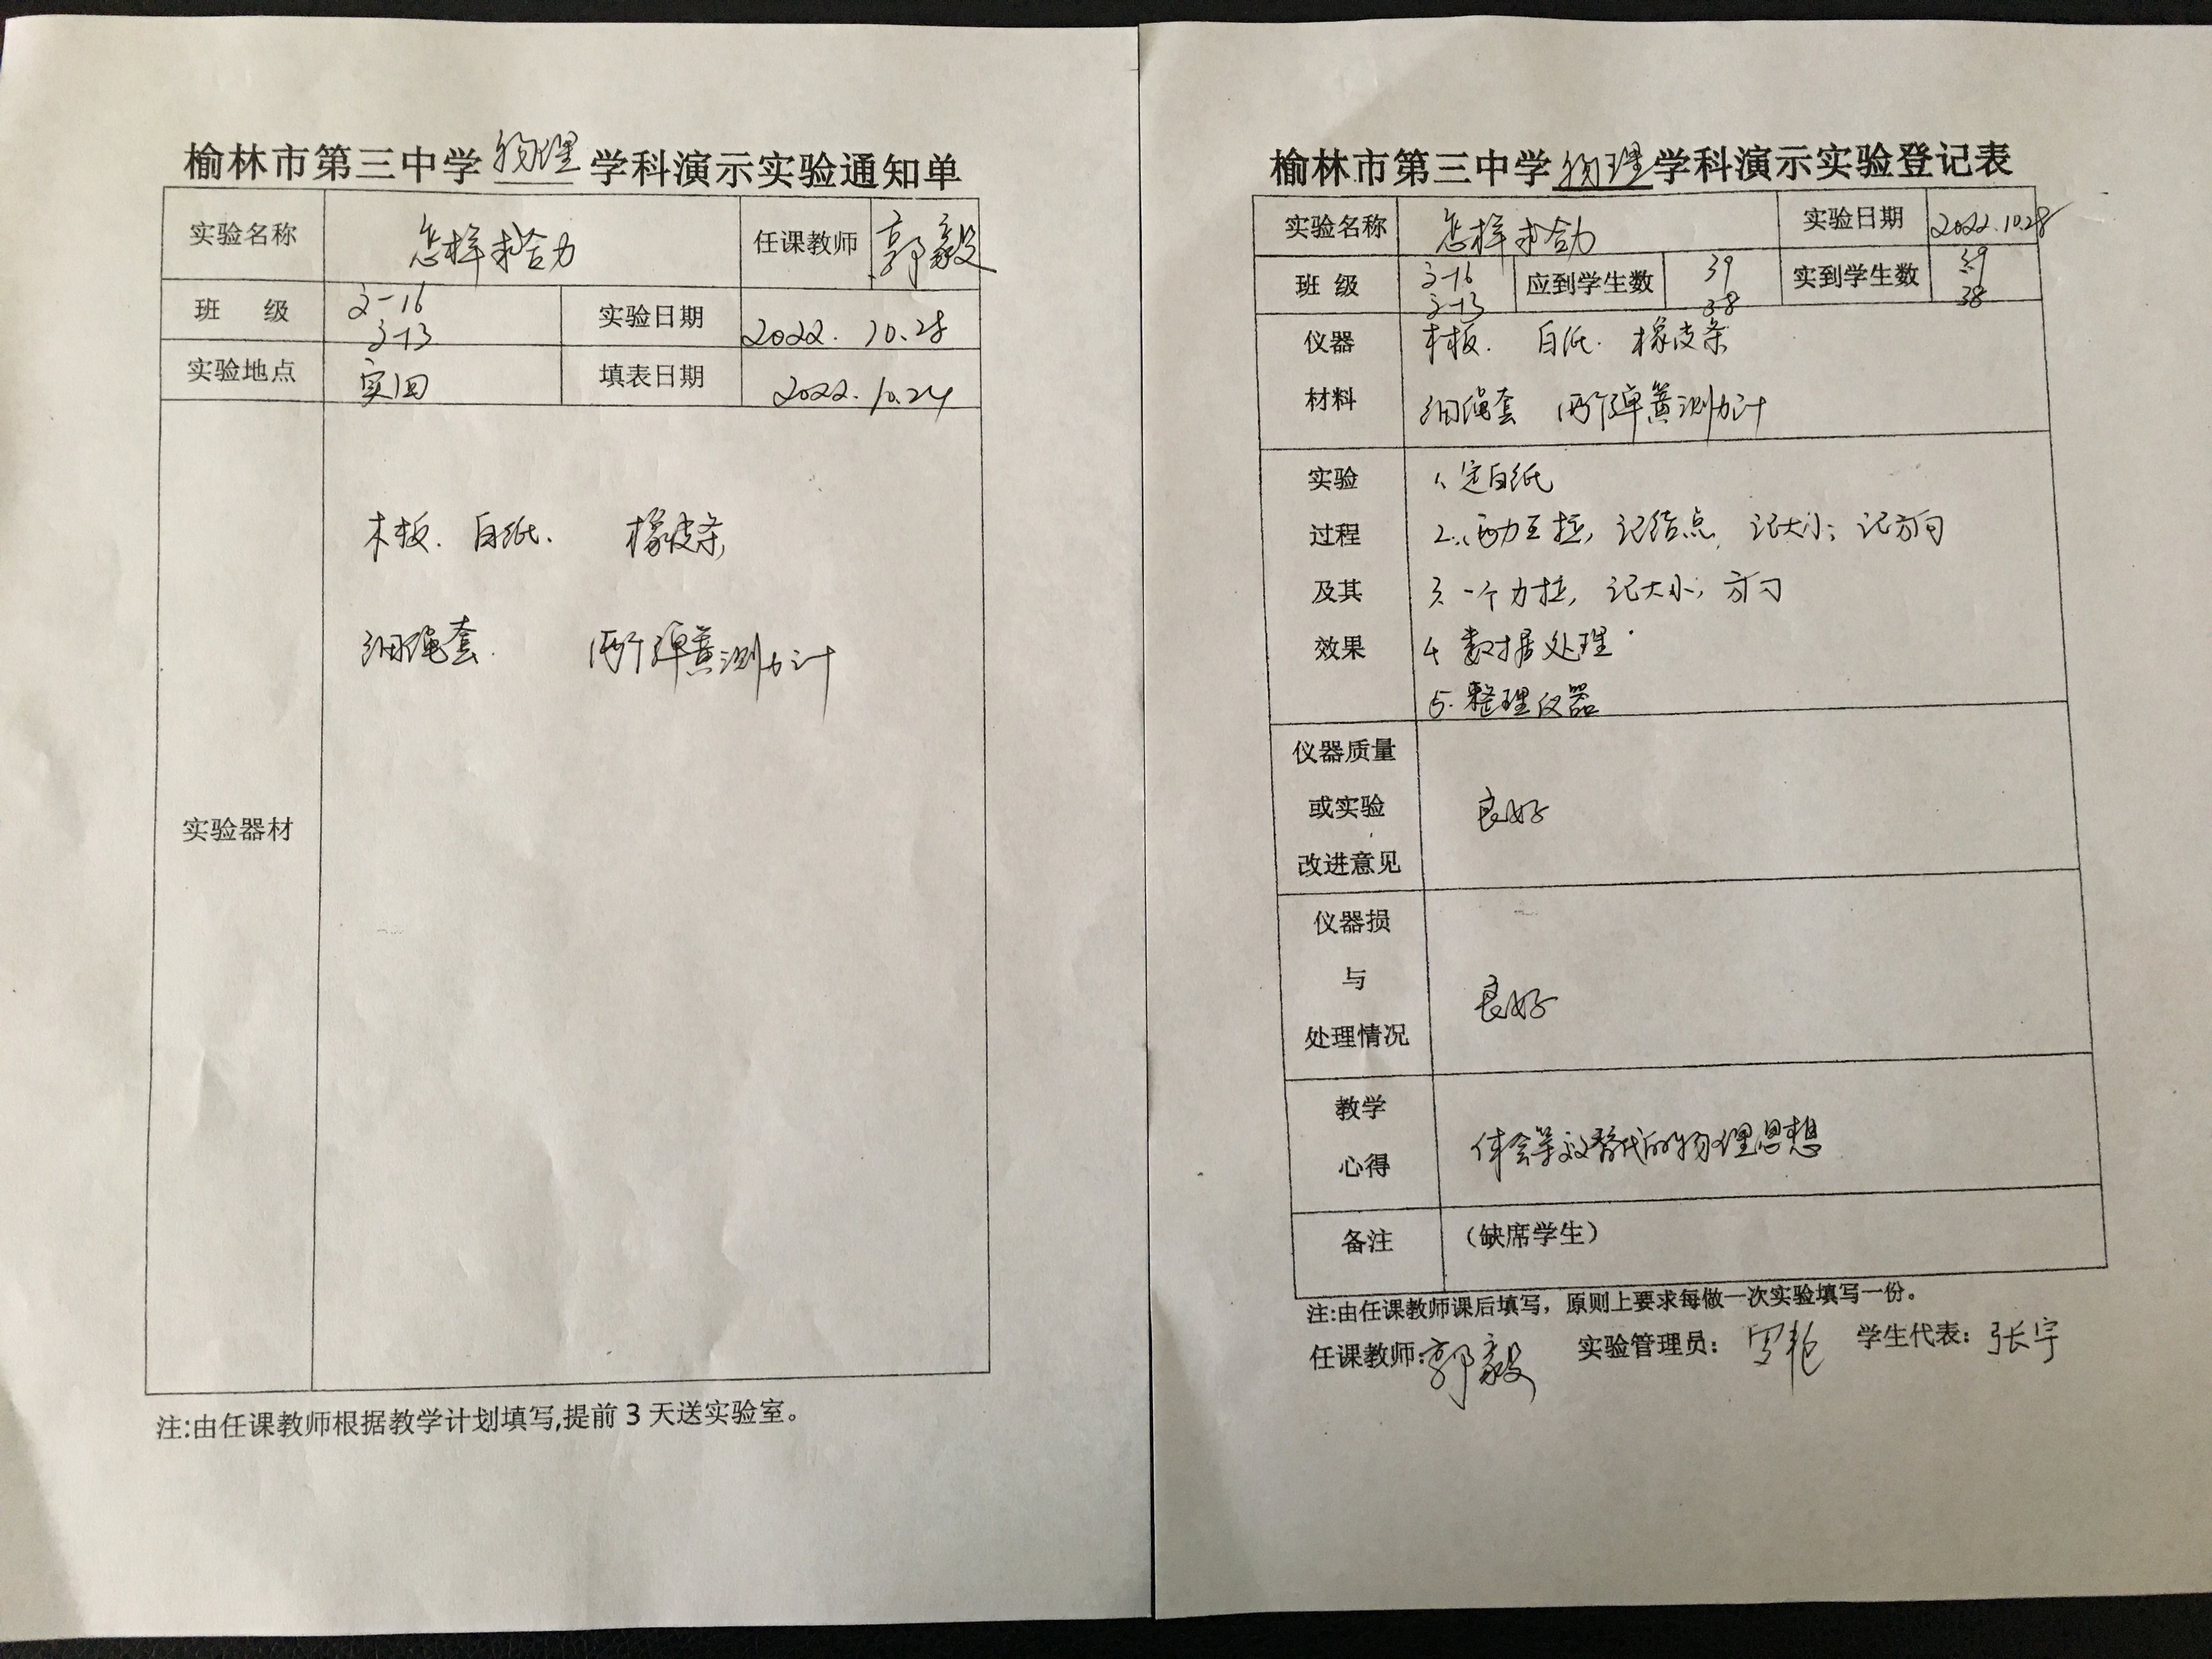 榆林市第三中学 物理 学科演示实验通知单
实验名称 怎样求合力 任课教师 郭毅
班 级 2-16 实验日期 2022.10.28
2-13
实验地点 实四 填表日期 2022.10.24
木板. 白纸. 橡皮条
细绳套. 两个弹簧测力计
实验器材
注:由任课教师根据教学计划填写,提前3天送实验室。
榆林市第三中学物理学科演示实验登记表
实验名称 怎样求合力 实验日期 2022.10.28
班 级 2-16 应到学生数 39 实到学生数 39
2-13 38 38
仪器 木板. 白纸. 橡皮条
材料 细绳套 两个弹簧测力计
实验 1、定白纸
过程 2、两力互拉, 记结点, 记大小; 记方向
及其 3、一个力拉, 记大小, 方向
效果 4 数据处理.
5. 整理仪器
仪器质量
或实验 良好
改进意见
仪器损
与 良好
处理情况
教学 体会等效替代的物理思想
心得
备注 (缺席学生)
注:由任课教师课后填写，原则上要求每做一次实验填写一份。
任课教师:郭毅 实验管理员: 学生代表: 张宇